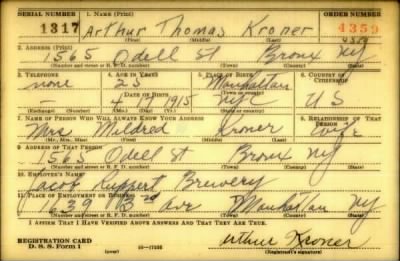 SERIAL NUMBER 1. NAME (Print) ORDER NUMBER
1317 Arthur Thomas Kroner 4359
(First) (Middle) (Last) 4359
2. ADDRESS (Print)
1565 Odell St Bronx NY
(Number and street or R. F. D. number) (Town) (County) (State)
3. TELEPHONE 4. AGE IN YEARS 5. PLACE OF BIRTH 6. COUNTRY OF CITIZENSHIP
none 25 Manhattan
DATE OF BIRTH (Town or county)
4 1915 NYC U S
(Exchange) (Number) (Mo.) (Day) (Yr.) (State or country)
7. NAME OF PERSON WHO WILL ALWAYS KNOW YOUR ADDRESS 8. RELATIONSHIP OF THAT PERSON
Mrs Mildred Kroner Wife
(Mr., Mrs., Miss) (First) (Middle) (Last)
9. ADDRESS OF THAT PERSON
1565 Odell St Bronx NY
(Number and street or R. F. D. number) (Town) (County) (State)
10. EMPLOYER'S NAME
Jacob Ruppert Brewery
11. PLACE OF EMPLOYMENT OR BUSINESS
1639 3rd Ave Manhattan NY
(Number and street or R. F. D. number) (Town) (County) (State)
I AFFIRM THAT I HAVE VERIFIED ABOVE ANSWERS AND THAT THEY ARE TRUE.
REGISTRATION CARD
D. S. S. Form 1 Arthur Kroner
(Registrant's signature)